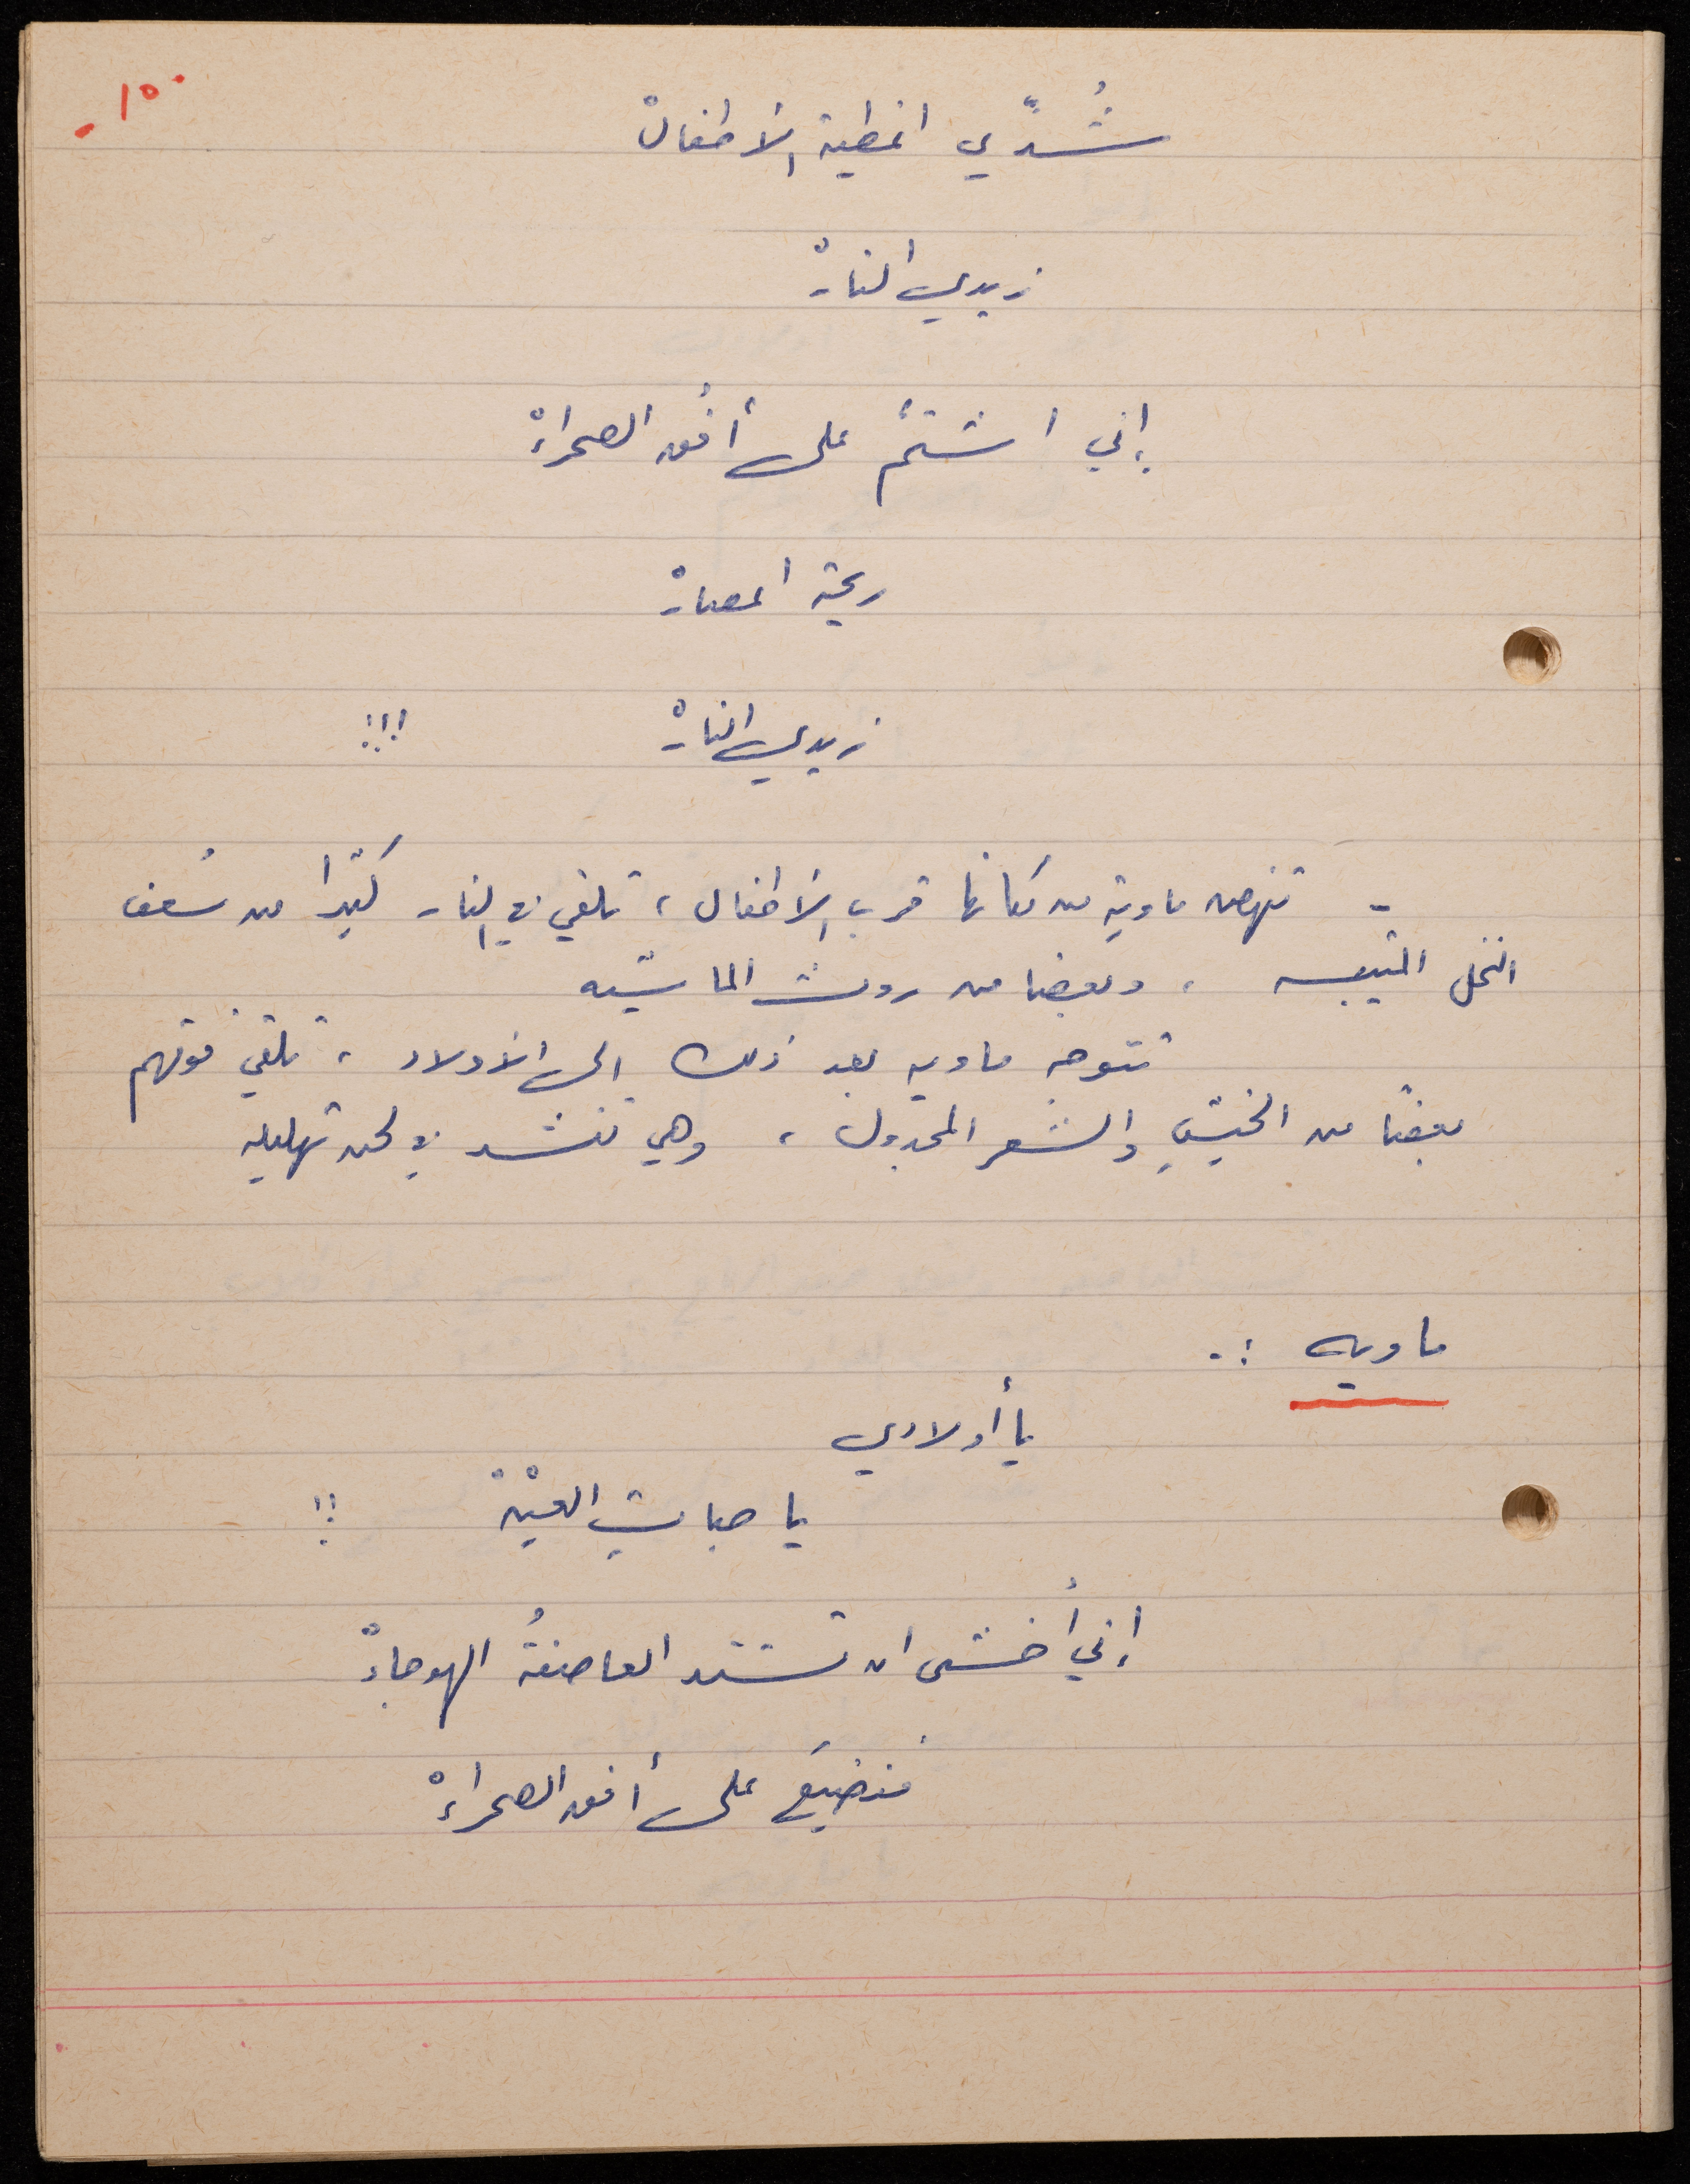 ١٥٠ -
شُدّي اغطية الأطفالْ
زيدي النارْ
إني اشتمُّ على أفُق الصحراءْ
ريحة اعصارْ
زيدي النارْ !!!
- تنهض ماوية من مكانها قرب الأطفال ، تلقي في النار كثيراً من سعف
النخل المتيبس ، وبعضا من روث الماشيه
تتوجه ماويه بعد ذلك الى الأولاد ، تلقي فوقهم
بعضًا من الخيش والشعر المجدول ، وهي تنشد في لحن تهليله
ماويه :.
يا أولادي
يا حباتِ العيْنْ !!
إني أخشى ان تشتد العاصفةُ الهوجاءْ
فنضيَع على أفق الصحراءْ